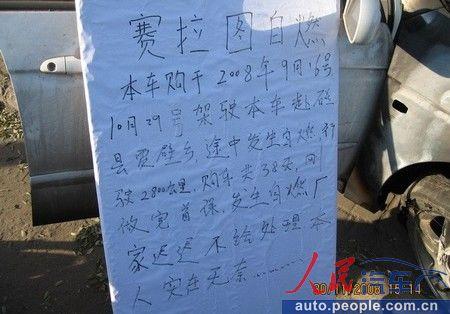 赛拉图自燃
本车购于2008年9月16号
10月29号驾驶本车赴磁
县贾壁乡,途中发生自燃,行
驶2800公里,购车共38天,刚
做完首保,发生自燃厂
家迟迟不给处理本
人实在无奈………
人民汽车
30/11/2008 15:14
auto.people.com.cn